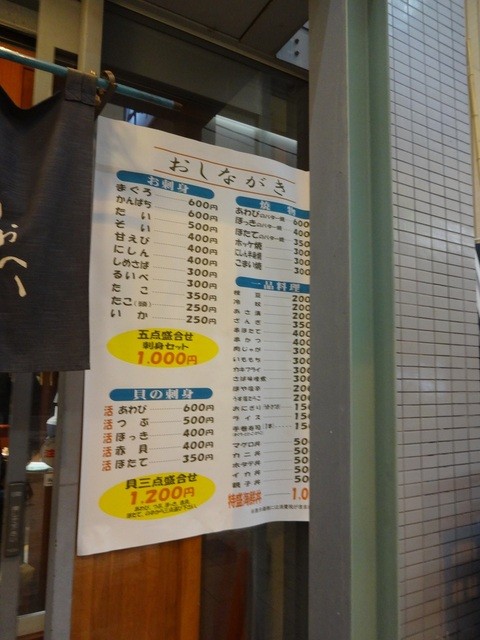 おしながき
お刺身
まぐろ 600円
かんぱち 600円
たい 500円
そい 400円
甘えび 400円
にしん 400円
しめさば 300円
るいべ 300円
たこ 350円
たこ(頭) 250円
いか 250円
五点盛合せ
刺身セット
1.000円
貝の刺身
活 あわび 600円
活 つぶ 500円
活 ほっき 400円
活 赤貝 400円
活 ほたて 350円
貝三点盛合せ
1.200円
焼物
あわびのバター焼 600
ほっきのバター焼 400
ほたてのバター焼 350
ホッケ焼 300
にしん焼 300
こまい焼 300
一品料理
枝豆 200
冷奴 200
あさ漬 200
ざんぎ 350
いももち 300
カキフライ 300
さば味噌煮 300
おにぎり 150
ライス 150
手巻寿司
マグロ丼 500
カニ丼 500
ホタテ丼 500
イカ丼 500
親子丼 500
特盛海鮮丼 1.0